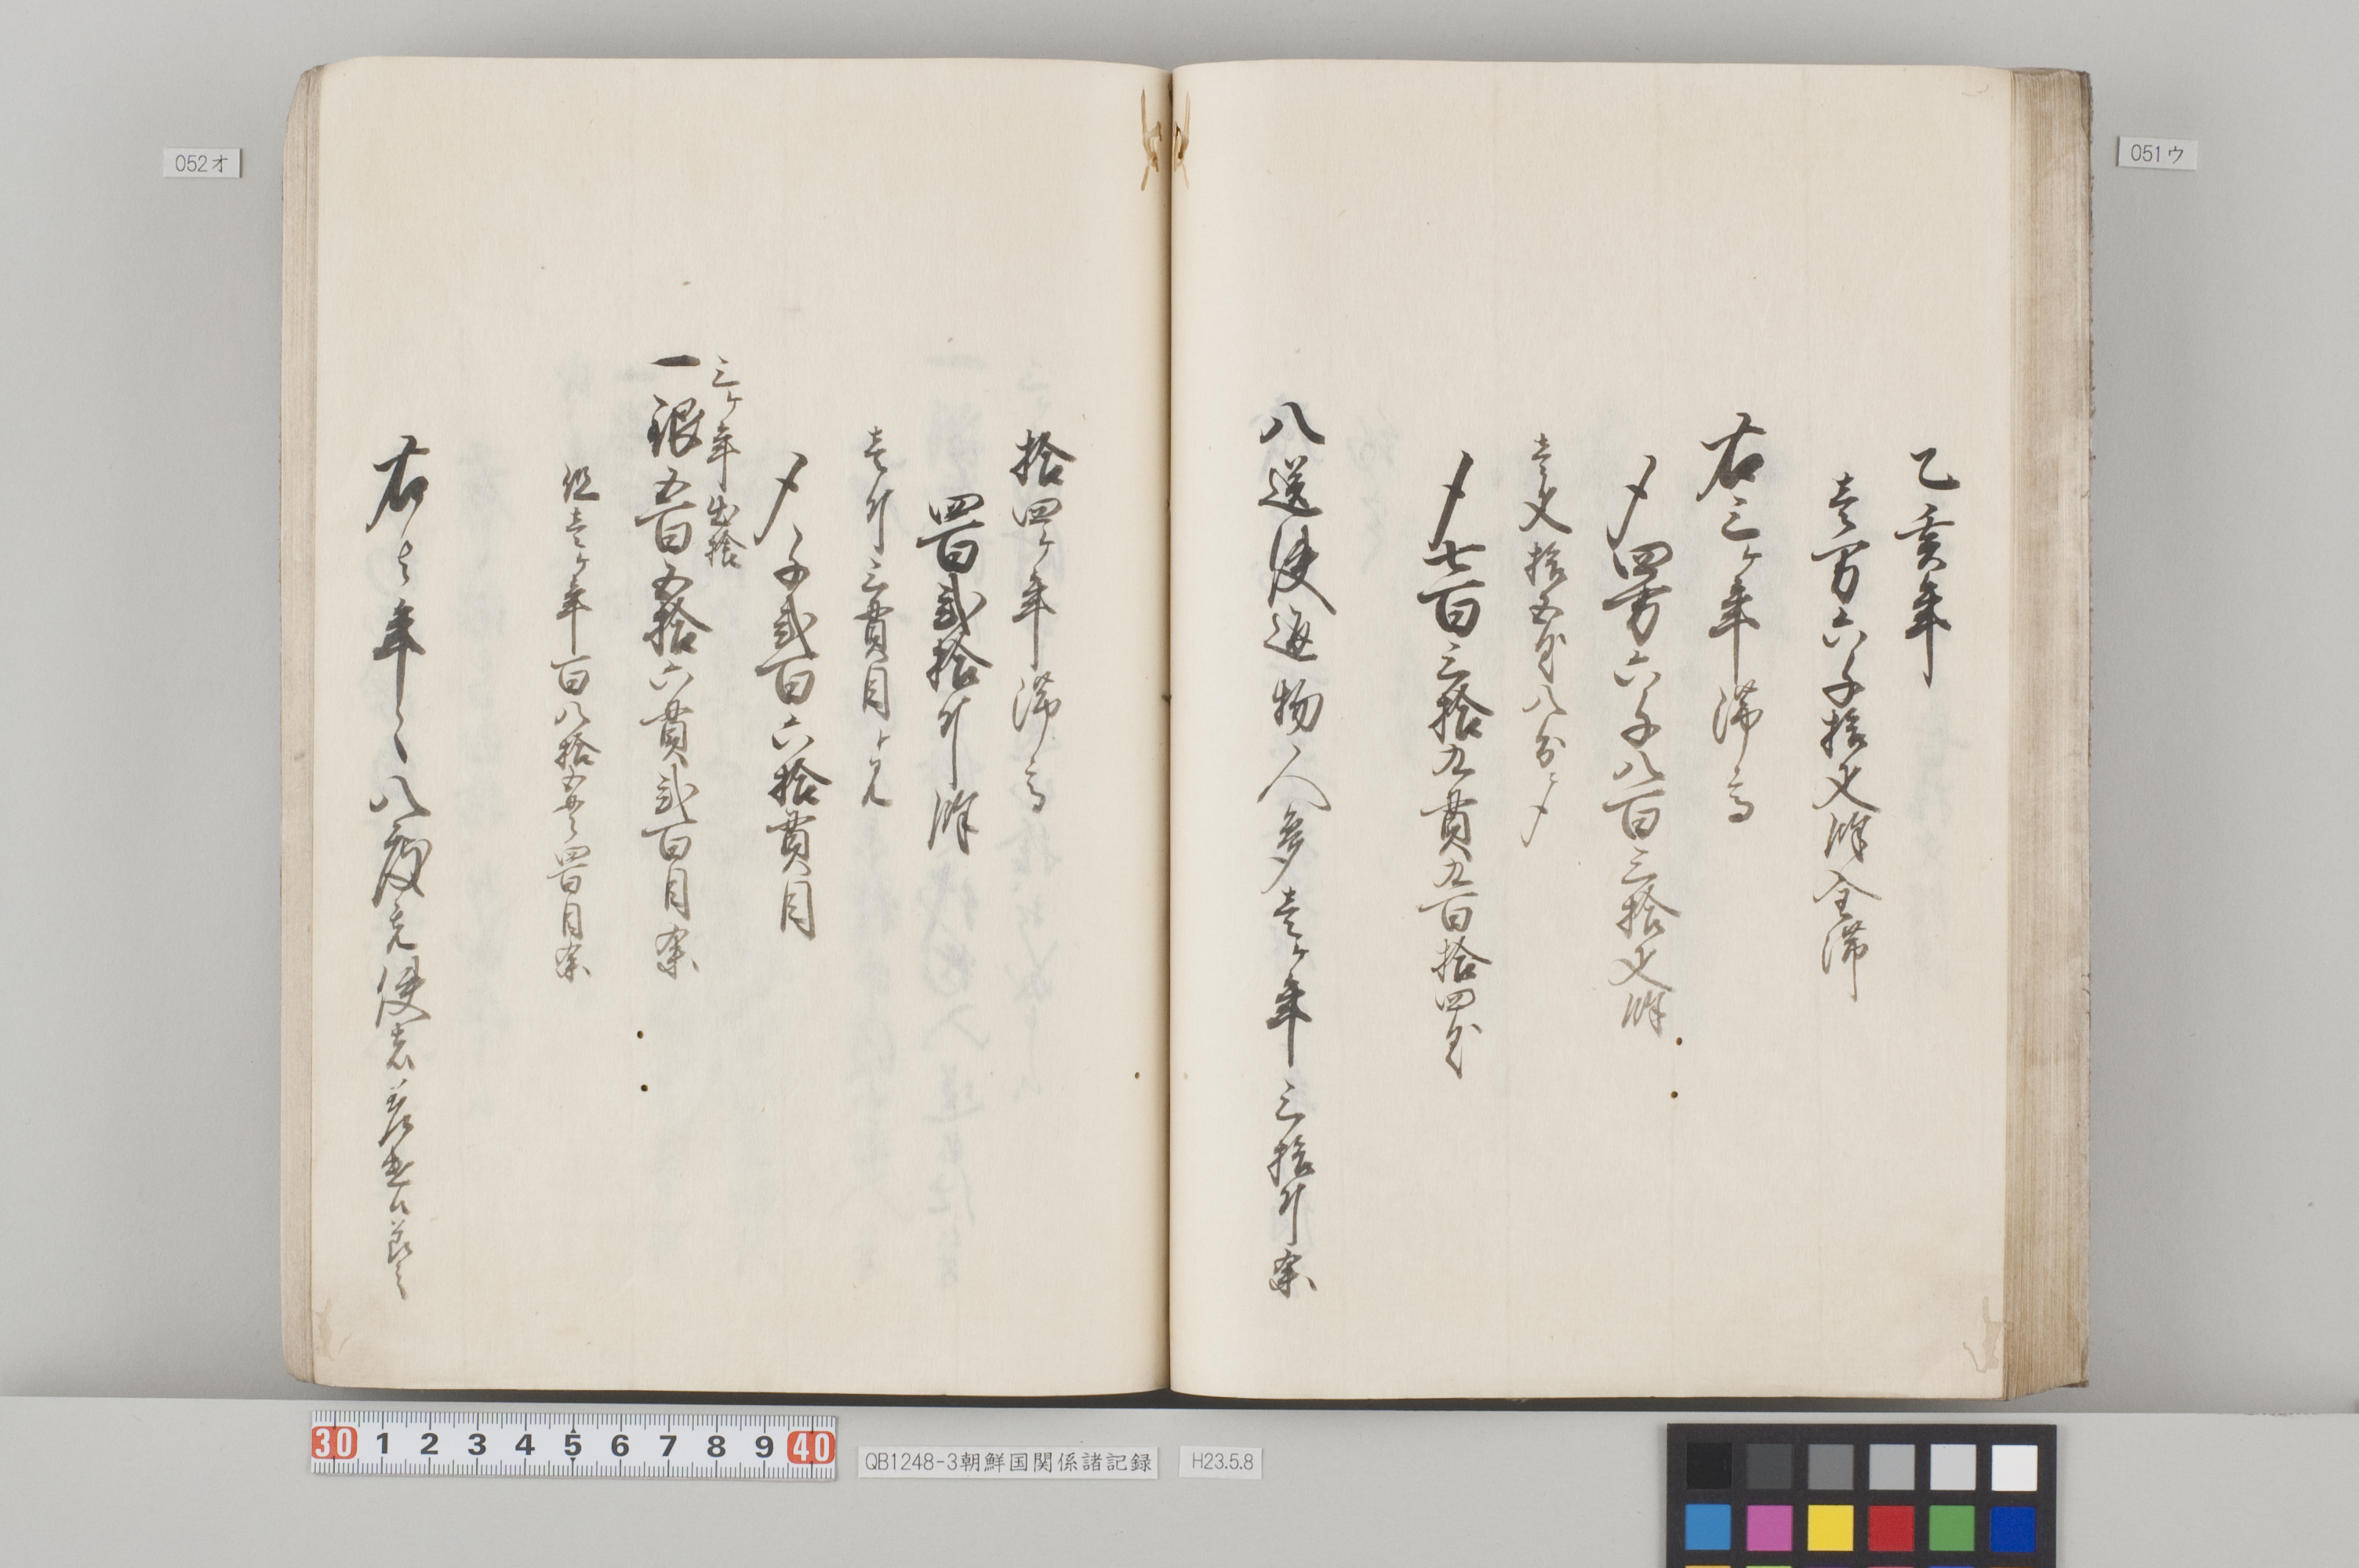 051ウ
乙亥年
壱万六千拾疋餘全滞
右三ヶ年滞高
〆四万六千八百三拾疋餘
壱疋拾五匁八分ヽ〆
〆七百三拾九貫九百拾四匁
八送使返物人参壱ヶ年三拾斤余
052オ
拾四ヶ年滞高
四百弐拾斤餘
壱斤三貫目ヽ〆
〆千弐百六拾貫目
三ヶ年出捨
一銀五百五拾六貫弐百目余
但壱ヶ年百八拾五貫四百目余
右之年々八度
30 1 2 3 4 5 6 7 8 9 40
QB1248-3朝鮮国関係諸記録
H23.5.8